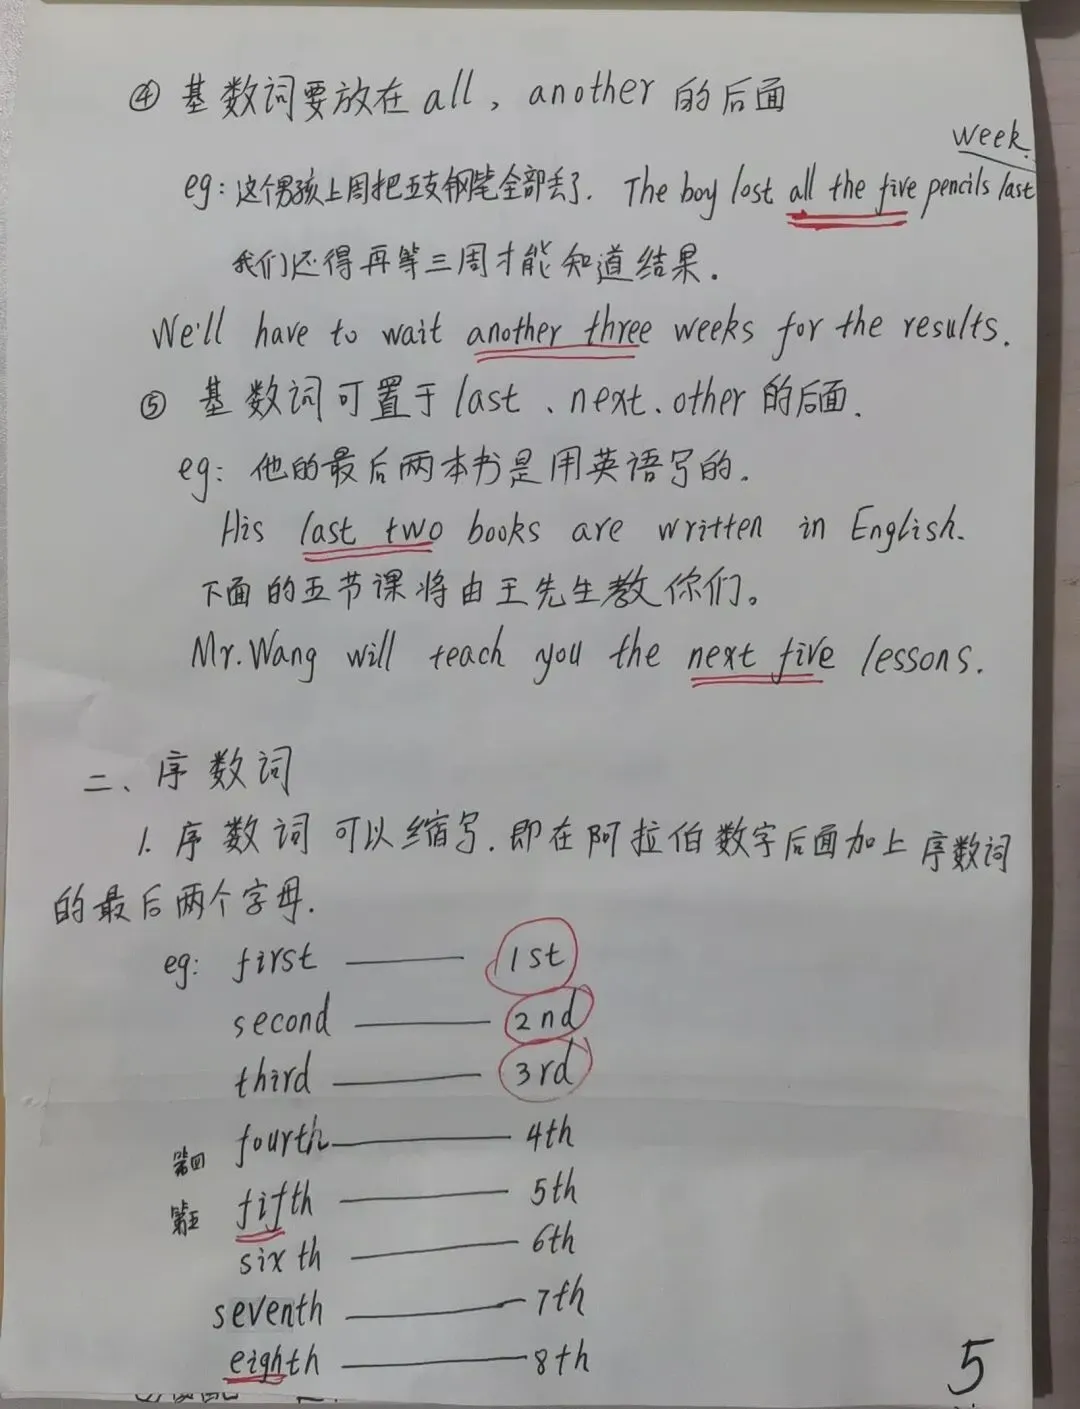 ④ 基数词要放在all，another的后面
eg: 这个男孩上周把五支钢笔全部丢了. The boy lost all the five pencils last week.
我们还得再等三周才能知道结果.
We'll have to wait another three weeks for the results.
⑤ 基数词可置于last、next、other的后面.
eg: 他的最后两本书是用英语写的.
His last two books are written in English.
下面的五节课将由王先生教你们。
Mr. Wang will teach you the next five lessons.
二、序数词
1. 序数词可以缩写. 即在阿拉伯数字后面加上序数词
的最后两个字母.
eg: first —— 1st
second —— 2nd
third —— 3rd
第四 fourth —— 4th
第五 fifth —— 5th
sixth —— 6th
seventh —— 7th
eighth —— 8th
5